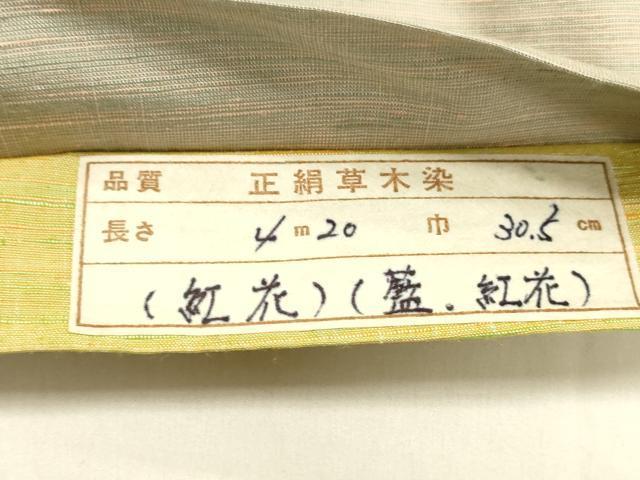 品質 正絹草木染
長さ 4m20 巾 30.5cm
(紅花)(藍.紅花)